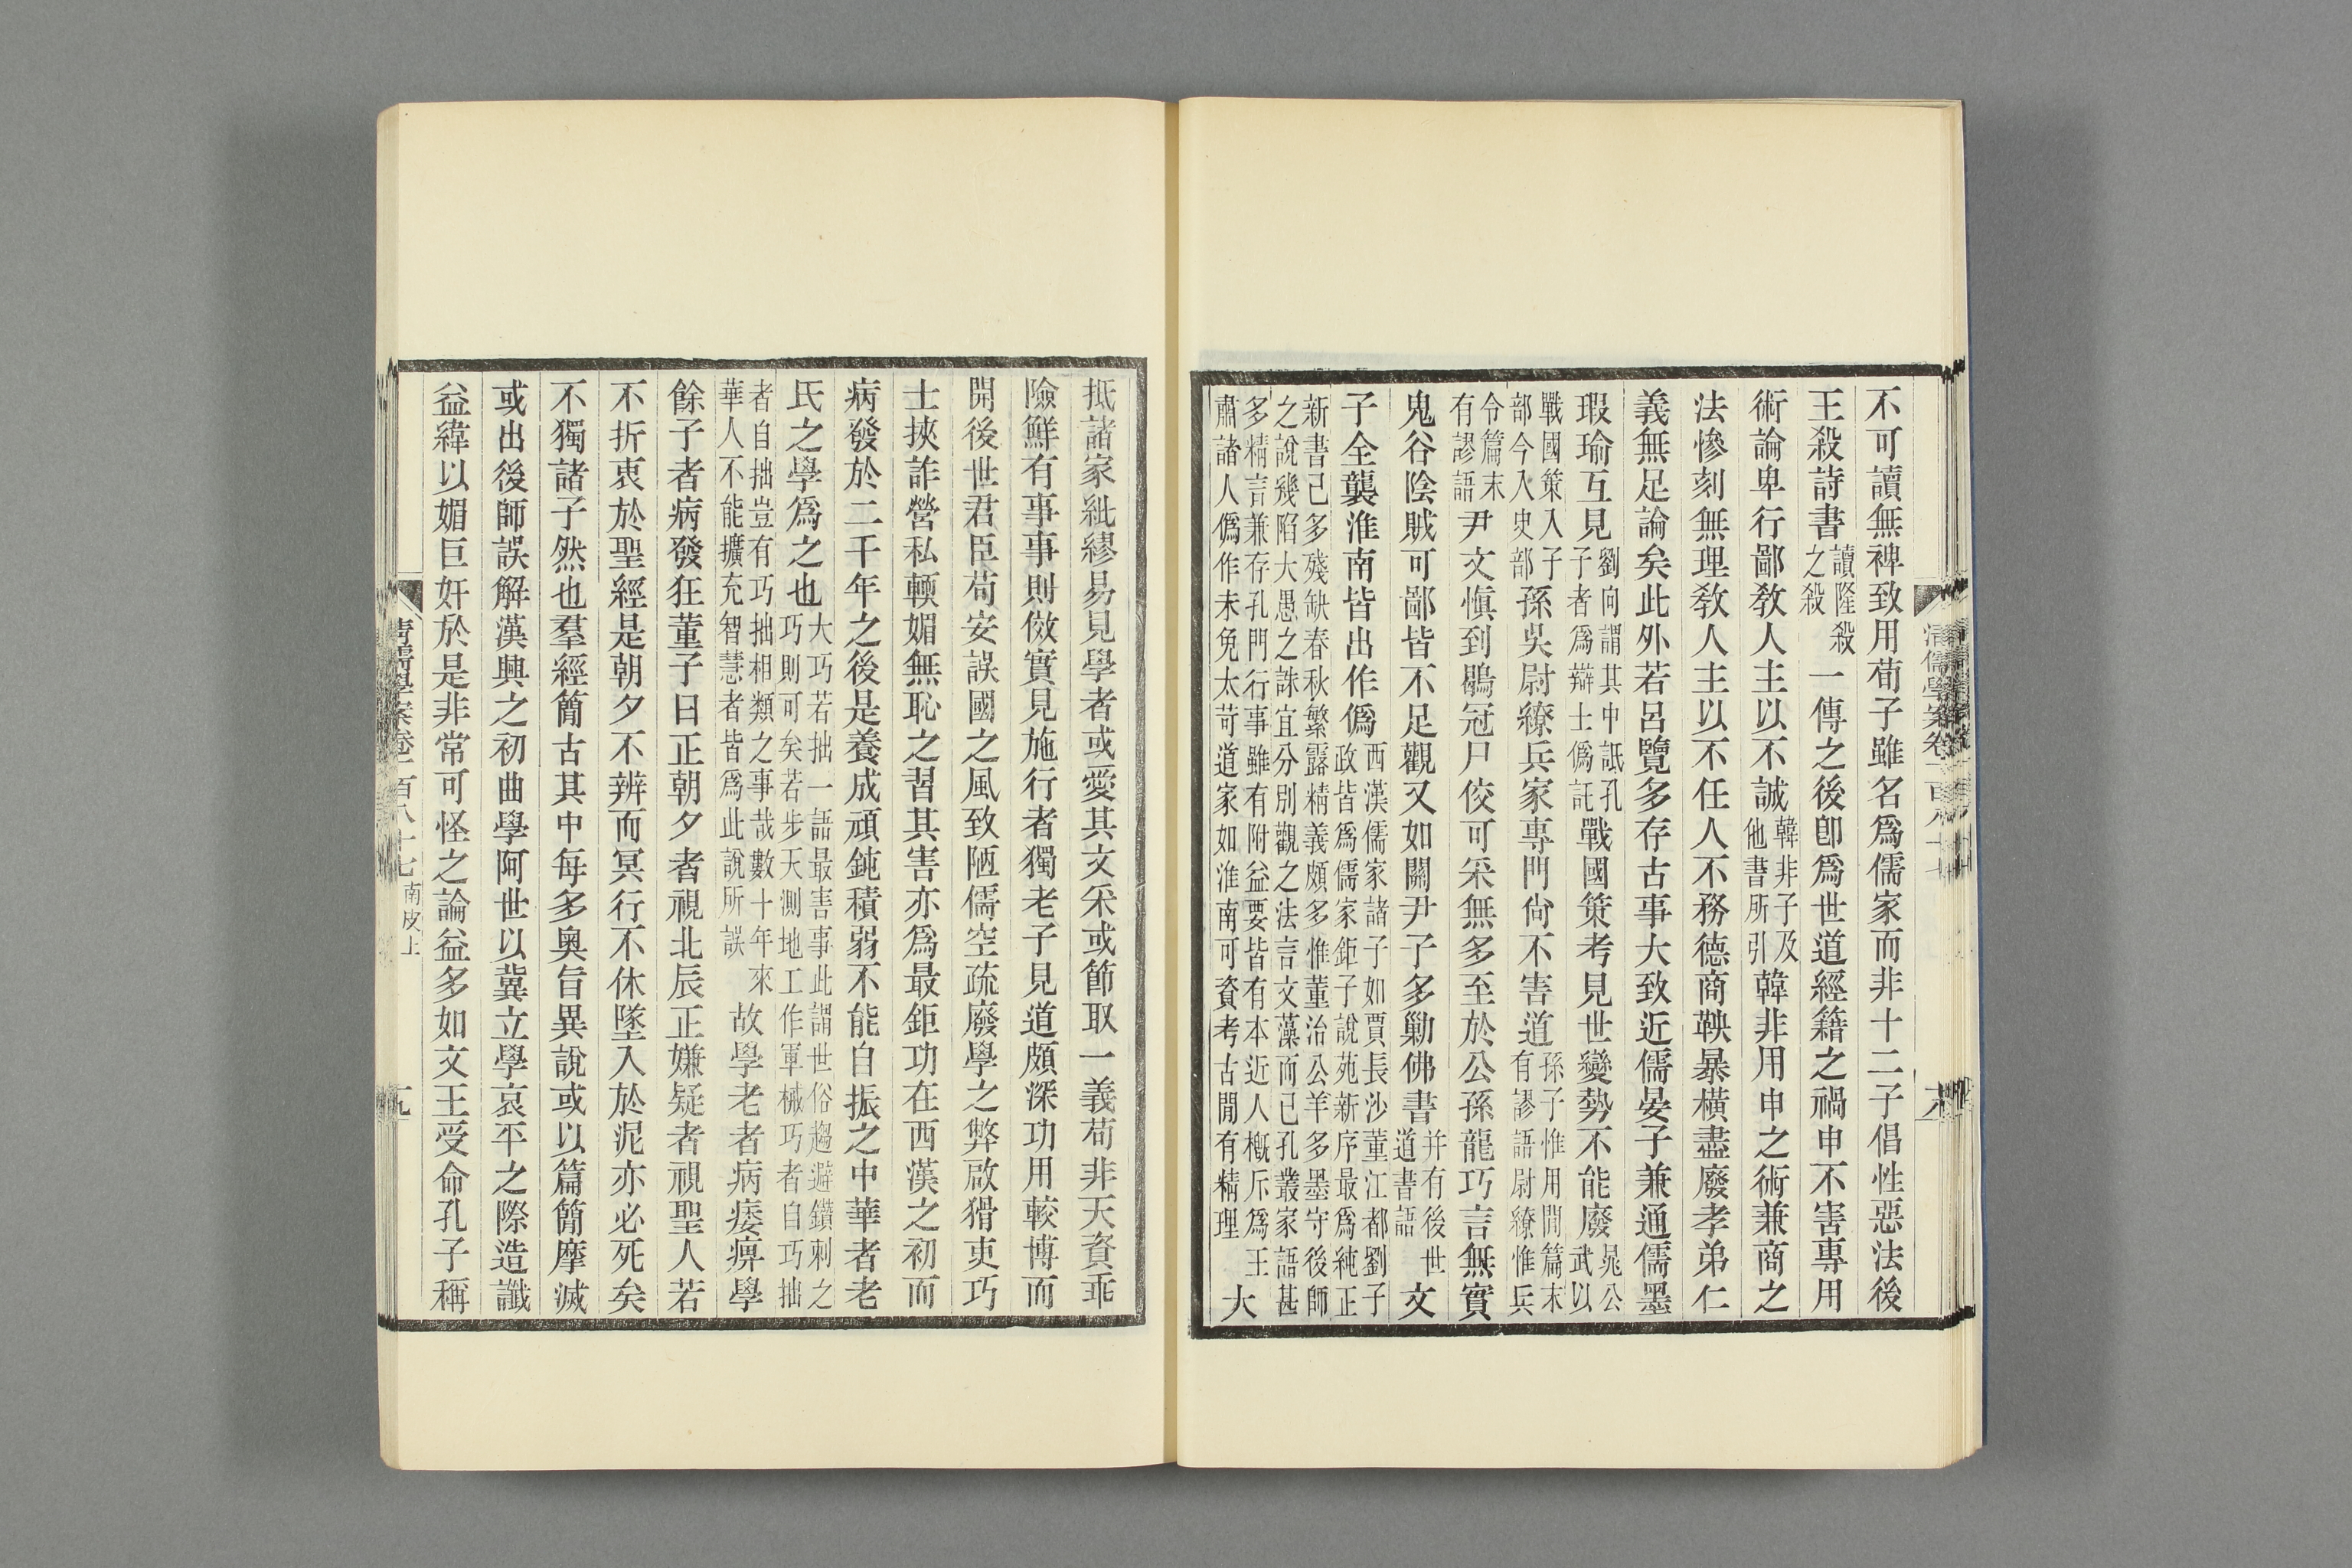 不可讀無裨致用荀子雖名爲儒家而非十二子倡性惡法後
王殺詩書讀隆殺之殺一傳之後卽爲世道經籍之禍申不害專用
術論卑行鄙敎人主以不誠韓非子及他書所引韓非用申之術兼商之
法慘刻無理敎人主以不任人不務德商鞅暴橫盡廢孝弟仁
義無足論矣此外若呂覽多存古事大致近儒晏子兼通儒墨
瑕瑜互見劉向謂其中詆孔子者爲辯士僞託戰國策考見世變勢不能廢晁公武以
戰國策入子部今入史部孫吳尉繚兵家專門尙不害道孫子惟用閒篇末有謬語尉繚惟兵
令篇末有謬語尹文愼到鶡冠尸佼可采無多至於公孫龍巧言無實
鬼谷陰賊可鄙皆不足觀又如關尹子多勦佛書并有後世道書語文
子全襲淮南皆出作僞西漢儒家諸子如賈長沙董江都劉子政皆爲儒家鉅子說苑新序最爲純正
新書已多殘缺春秋繁露精義頗多惟董治公羊多墨守後師之說幾陷大愚之誅宜分別觀之法言文藻而已孔叢家語甚
多精言兼存孔門行事雖有附益要皆有本近人槪斥爲王肅諸人僞作未免太苛道家如淮南可資考古閒有精理大
清儒學案卷一百八十七
抵諸家紕繆易見學者或愛其文采或節取一義苟非天資乖
險鮮有事事則傚實見施行者獨老子見道頗深功用較博而
開後世君臣苟安誤國之風致陋儒空疏廢學之弊啟猾吏巧
士挾詐營私輭媚無恥之習其害亦爲最鉅功在西漢之初而
病發於二千年之後是養成頑鈍積弱不能自振之中華者老
氏之學爲之也大巧若拙一語最害事此謂世俗趨避鑽刺之巧則可矣若步天測地工作軍械巧者自巧拙
者自拙豈有巧拙相類之事哉數十年來華人不能擴充智慧者皆爲此說所誤故學老者病痿痹學
餘子者病發狂董子曰正朝夕者視北辰正嫌疑者視聖人若
不折衷於聖經是朝夕不辨而冥行不休墜入於泥亦必死矣
不獨諸子然也羣經簡古其中每多奧旨異說或以篇簡摩滅
或出後師誤解漢興之初曲學阿世以冀立學哀平之際造讖
益緯以媚巨奸於是非常可怪之論益多如文王受命孔子稱
清儒學案卷一百八十七 南皮上